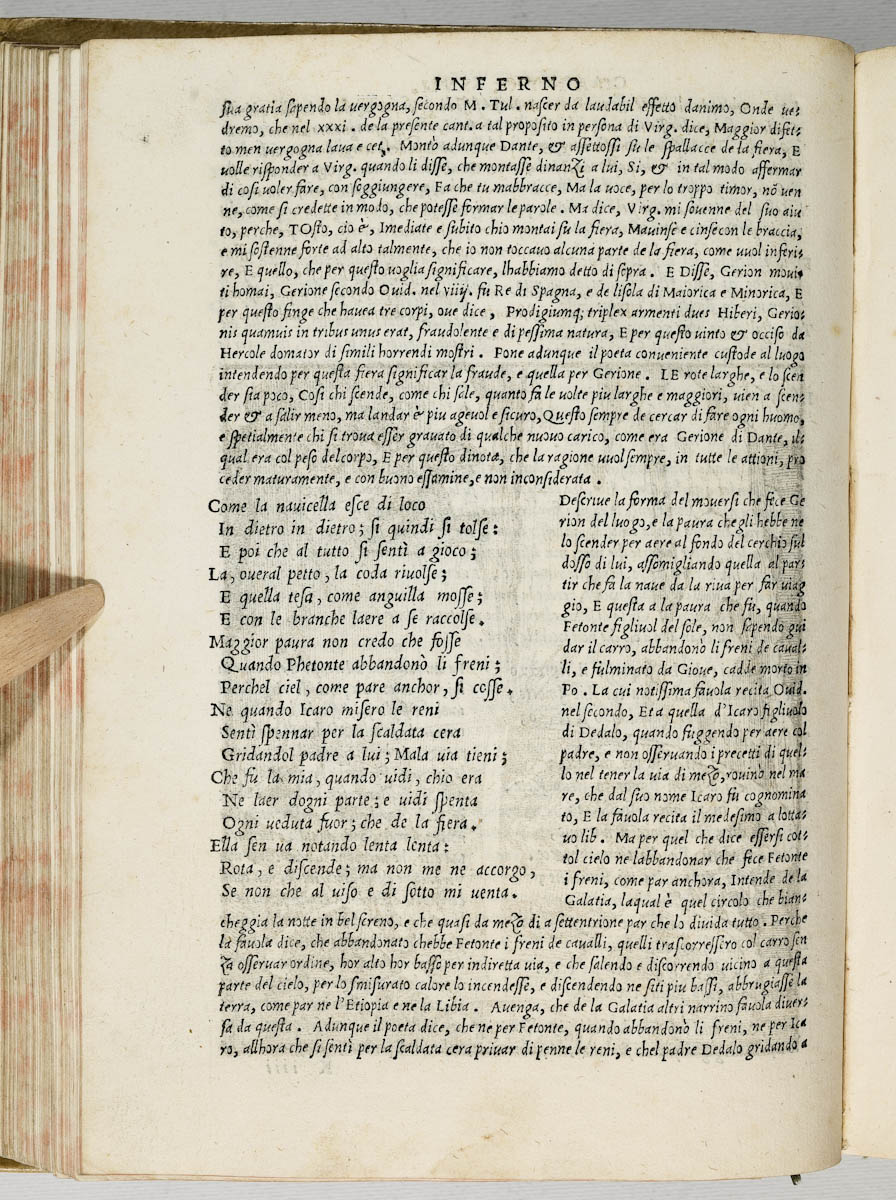 INFERNO
sua gratia sapendo la uergogna, secondo M. Tul. nascer da laudabil effetto danimo, Onde ue-
dremo, che nel xxxi. de la presente cant. a tal proposito in persona di Virg. dice, Maggior difet-
to men uergogna laua e cet. Montò adunque Dante, & assettossi su le spallacce de la fiera, E
uolle risponder a Virg. quando li disse, che montasse dinanzi a lui, Si, & in tal modo affermar
di cosi uoler fare, con soggiungere, Fa che tu mabbracce, Ma la uoce, per lo troppo timor, nõ uen
ne, come si credette in modo, che potesse formar le parole. Ma dice, Virg. mi souenne del suo aiu
to, perche, TOsto, cio è, Imediate e subito chio montai su la fiera, Mauinse e cinsecon le braccia,
e mi sostenne forte ad alto talmente, che io non toccauo alcuna parte de la fiera, come uuol inferi-
re, E quello, che per questo uoglia significare, lhabbiamo detto di sopra. E Disse, Gerion moui-
ti homai, Gerione secondo Ouid. nel viiij. fu Re di Spagna, e de lisola di Maiorica e Minorica, E
per questo finge che hauea tre corpi, oue dice, Prodigiumq; triplex armenti dues Hiberi, Gerio-
nis quamuis in tribus unus erat, fraudolente e di pessima natura, E per questo uinto & occiso da
Hercole domator di simili horrendi mostri. Pone adunque il poeta conueniente custode al luogo
intendendo per questa fiera significar la fraude, e quella per Gerione. LE rote larghe, e lo scen
der sia poco, Cosi chi scende, come chi sale, quanto fa le uolte piu larghe e maggiori, uien a scen-
der & a salir meno, ma landar è piu ageuol e sicuro, Questo sempre de cercar di fare ogni huomo,
e spetialmente chi si troua esser grauato di qualche nuouo carico, come era Gerione di Dante, il-
qual era col peso del corpo, E per questo dinota, che la ragione uuol sempre, in tutte le attioni, pro
ceder maturamente, e con buono essamine, e non inconsiderata.
Come la nauicella esce di loco
In dietro in dietro; si quindi si tolse:
E poi che al tutto si sentì a gioco;
La, oueral petto, la coda riuolse;
E quella tesa, come anguilla mosse;
E con le branche laere a se raccolse.
Maggior paura non credo che fosse
Quando Phetonte abbandonò li freni;
Perchel ciel, come pare anchor, si cosse.
Ne quando Icaro misero le reni
Sentì spennar per la scaldata cera
Gridandol padre a lui; Mala uia tieni;
Che fu la mia, quando uidi, chio era
Ne laer dogni parte; e uidi spenta
Ogni ueduta fuor; che de la fiera.
Ella sen ua notando lenta lenta:
Rota, e discende; ma non me ne accorgo,
Se non che al uiso e di sotto mi uenta.
Descriue la forma del mouersi che fece Ge
rion del luogo, e la paura che gli hebbe ne
lo scender per aere al fondo del cerchio sul
dosso di lui, assomigliando quella al par-
tir che fa la naue da la riua per far uiag
gio, E questa a la paura che fu, quando
Fetonte figliuol del sole, non sapendo gui
dar il carro, abbandonò li freni de caual-
li, e fulminato da Gioue, cadde morto in
Po. La cui notissima fauola recita Ouid.
nel secondo, Et a quella d'Icaro figliuolo
di Dedalo, quando fuggendo per aere col
padre, e non osseruando i precetti di quel-
lo nel tener la uia di mezo, rouinò nel ma
re, che dal suo nome Icaro fu cognomina
to, E la fauola recita il medesimo a lotta-
uo lib. Ma per quel che dice essersi cot-
tol cielo ne labbandonar che fece Fetonte
i freni, come par anchora, Intende de la
Galatia, laqual è quel circolo che bian-
cheggia la notte in bel sereno, e che quasi da mezo di a settentrione par che lo diuida tutto. Perche
la fauola dice, che abbandonato chebbe Fetonte i freni de caualli, quelli trascorressero col carro sen
za osseruar ordine, hor alto hor basso per indiretta uia, e che salendo e discorrendo uicino a questa
parte del cielo, per lo smisurato calore lo incendesse, e discendendo ne siti piu bassi, abbrugiasse la
terra, come par ne l'Etiopia e ne la Libia. Auenga, che de la Galatia altri narrino fauola diuer-
sa da questa. Adunque il poeta dice, che ne per Fetonte, quando abbandonò li freni, ne per Ica
ro, allhora che si sentì per la scaldata cera priuar di penne le reni, e chel padre Dedalo gridando a